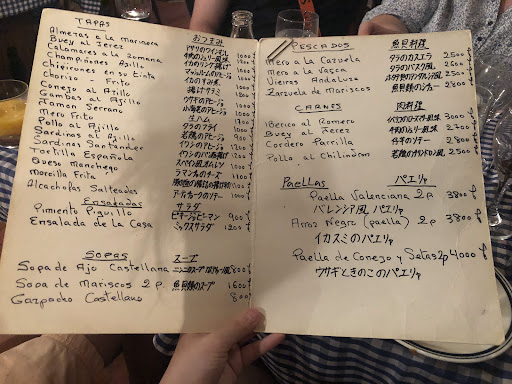 TAPAS おつまみ
Almejas a la Marinera アサリのワイン蒸し 1000
Buey al Jerez 牛肉のシェリー風味
Calamares a la Romana イカのリング揚げ
Champiñones Ajillo マッシュルームのアヒージョ
Chipirones en su tinta イカのスミ煮
Chorizo Frito 揚げサラミ
Conejo al Ajillo ウサギのアヒージョ
Gambas al Ajillo 小海老のアヒージョ
Jamon Serrano 生ハム
Mero Frito タラのフライ
Pollo al Ajillo 若鶏のアヒージョ
Sardinas al Ajillo イワシのアヒージョ
Sardinas Santander
Tortilla Española スペイン風オムレツ
Queso Manchego ラマンチャのチーズ
Morcilla Frita
Alcachofas Salteadas
Ensaladas サラダ
Pimiento Piquillo ピキージョピーマン 900
Ensalada de la Casa ミックスサラダ 1200
SOPAS スープ
Sopa de Ajo Castellana 800
Sopa de Mariscos 2 p. 魚貝類のスープ 1600
Gazpacho Castellano 800
PESCADOS 魚貝料理
Mero a la Cazuela タラのカスエラ 2500
Mero a la Vasca タラのバスク風 2600
Vieiras Andaluza 2600
Zarzuela de Mariscos 魚貝類のシチュー 2800
CARNES 肉料理
Iberico al Romero 3000
Buey al Jerez 牛肉のシェリー風味 2700
Cordero Parrilla 2800
Pollo al Chilindron 若鶏のチリンドロン風 2500
Paellas パエリャ
Paella Valenciana 2 p. 3800
バレンシア風 パエリャ
Arros Negro (paella) 2 p 3800
イカスミのパエリャ
Paella de Conejo y Setas 2p 4000
ウサギときのこのパエリャ